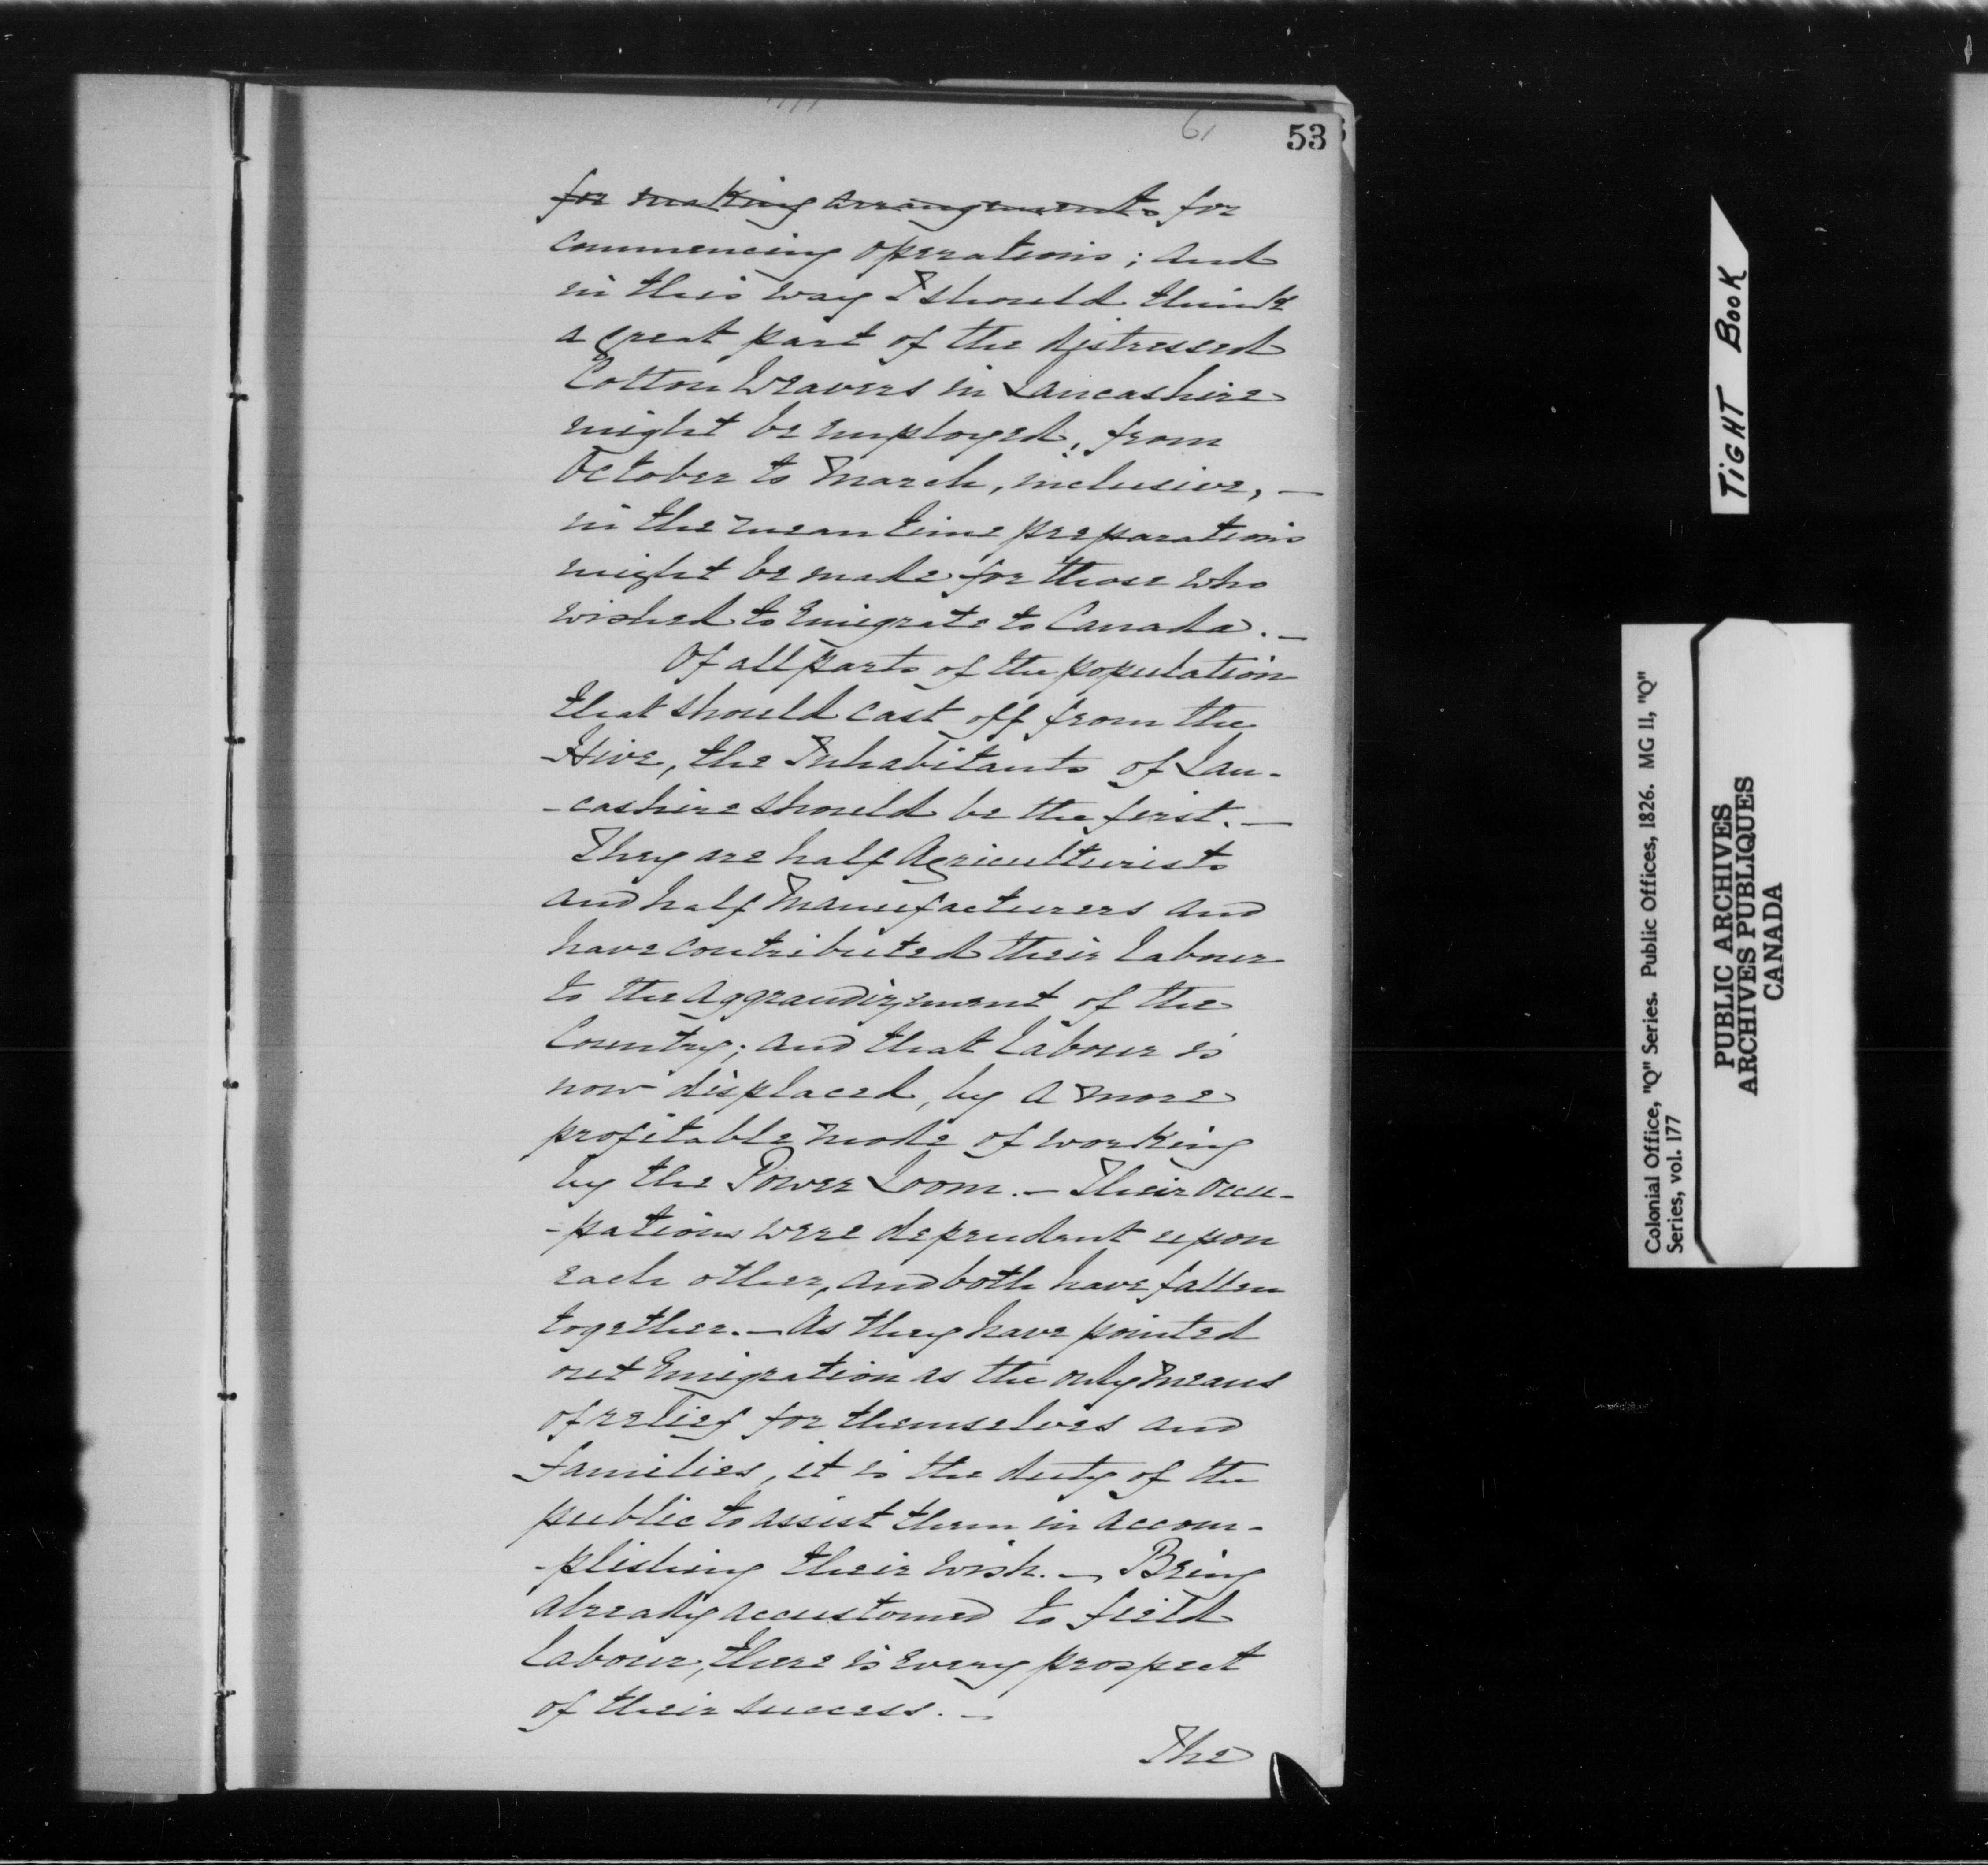 61
53
for making arrangements for
commencing operations; and
in this way I should think
a great part of the distressed
Cotton Weavers in Lancashire
might be employed, from
October to March, inclusive, —
in the mean time preparations
might be made for those who
wished to Emigrate to Canada. —
Of all parts of the population
that should cast off from the
Hive, the Inhabitants of Lan-
-cashire should be the first. —
They are half Agriculturists
and half Manufacturers and
have contributed their labour
to the Aggrandizement of the
Country; and that labour is
now displaced, by a more
profitable mode of working
by the Power Loom. — Their occu-
-pations were dependent upon
each other, and both have fallen
together. — As they have pointed
out Emigration as the only means
of relief for themselves and
families, it is the duty of the
public to assist them in accom-
-plishing their wish. — Being
already accustomed to field
labour, there is every prospect
of their success. —
The
TIGHT BOOK
Colonial Office, "Q" Series. Public Offices, 1826. MG 11, "Q"
Series, vol. 177
PUBLIC ARCHIVES
ARCHIVES PUBLIQUES
CANADA